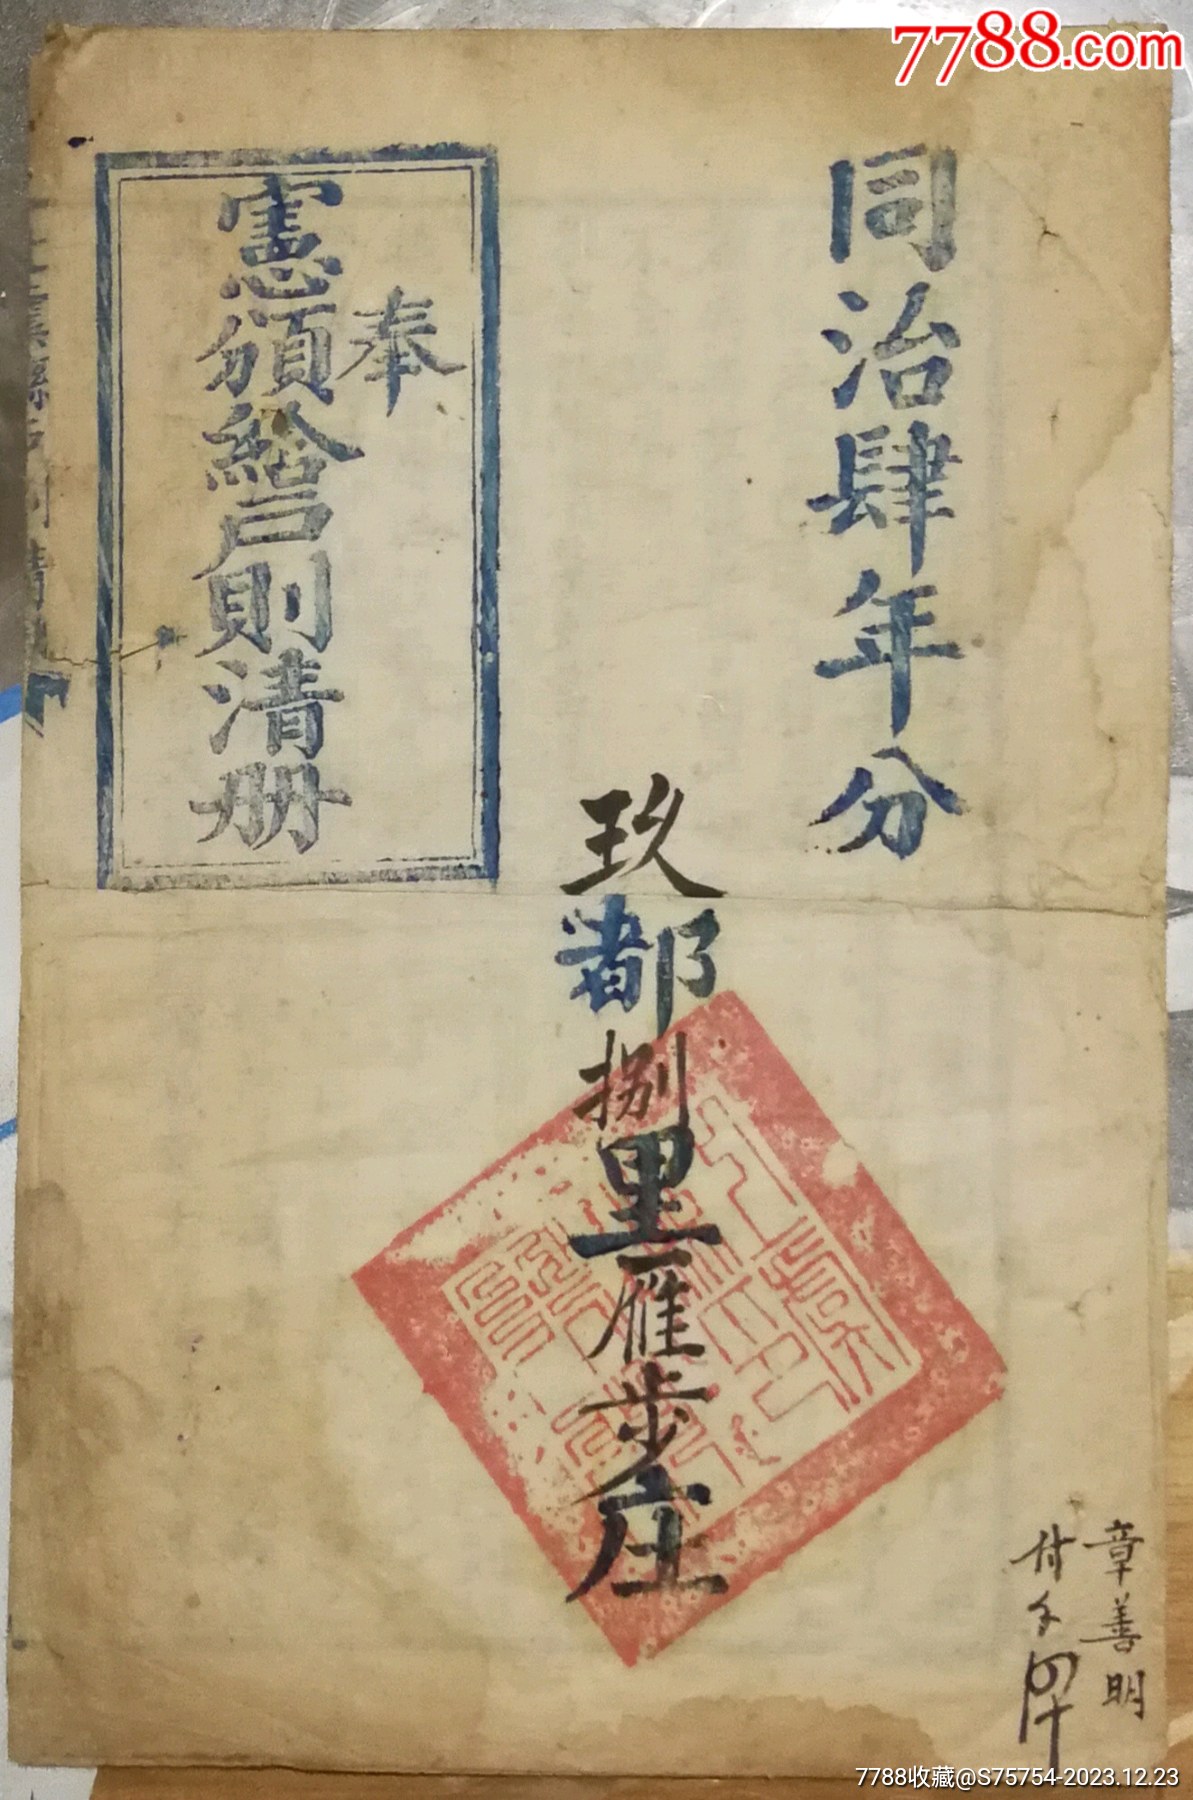 7788.com
同治肆年分
玖都捌里雁步庄
奉
憲頒給戸則清册
章善明
付
7788收藏@S75754-2023.12.23